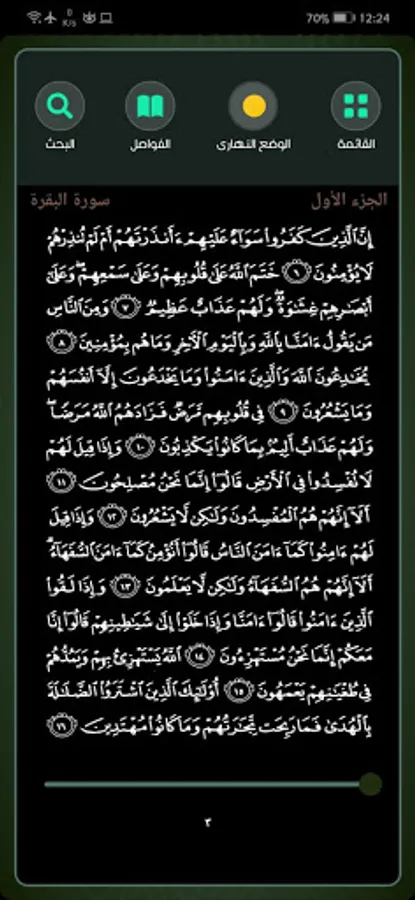 70% 12:24
0 K/s
القائمة الوضع النهاري الفواصل البحث
الجزء الأول سورة البقرة
إِنَّ ٱلَّذِينَ كَفَرُوا۟ سَوَآءٌ عَلَيْهِمْ ءَأَنذَرْتَهُمْ أَمْ لَمْ تُنذِرْهُمْ
لَا يُؤْمِنُونَ ٦ خَتَمَ ٱللَّهُ عَلَىٰ قُلُوبِهِمْ وَعَلَىٰ سَمْعِهِمْ ۖ وَعَلَىٰٓ
أَبْصَـٰرِهِمْ غِشَـٰوَةٌ ۖ وَلَهُمْ عَذَابٌ عَظِيمٌ ٧ وَمِنَ ٱلنَّاسِ
مَن يَقُولُ ءَامَنَّا بِٱللَّهِ وَبِٱلْيَوْمِ ٱلْـَٔاخِرِ وَمَا هُم بِمُؤْمِنِينَ ٨
يُخَـٰدِعُونَ ٱللَّهَ وَٱلَّذِينَ ءَامَنُوا۟ وَمَا يَخْدَعُونَ إِلَّآ أَنفُسَهُمْ
وَمَا يَشْعُرُونَ ٩ فِى قُلُوبِهِم مَّرَضٌ فَزَادَهُمُ ٱللَّهُ مَرَضًا ۖ
وَلَهُمْ عَذَابٌ أَلِيمٌۢ بِمَا كَانُوا۟ يَكْذِبُونَ ١٠ وَإِذَا قِيلَ لَهُمْ
لَا تُفْسِدُوا۟ فِى ٱلْأَرْضِ قَالُوٓا۟ إِنَّمَا نَحْنُ مُصْلِحُونَ ١١
أَلَآ إِنَّهُمْ هُمُ ٱلْمُفْسِدُونَ وَلَـٰكِن لَّا يَشْعُرُونَ ١٢ وَإِذَا قِيلَ
لَهُمْ ءَامِنُوا۟ كَمَآ ءَامَنَ ٱلنَّاسُ قَالُوٓا۟ أَنُؤْمِنُ كَمَآ ءَامَنَ ٱلسُّفَهَآءُ ۗ
أَلَآ إِنَّهُمْ هُمُ ٱلسُّفَهَآءُ وَلَـٰكِن لَّا يَعْلَمُونَ ١٣ وَإِذَا لَقُوا۟
ٱلَّذِينَ ءَامَنُوا۟ قَالُوٓا۟ ءَامَنَّا وَإِذَا خَلَوْا۟ إِلَىٰ شَيَـٰطِينِهِمْ قَالُوٓا۟ إِنَّا
مَعَكُمْ إِنَّمَا نَحْنُ مُسْتَهْزِءُونَ ١٤ ٱللَّهُ يَسْتَهْزِئُ بِهِمْ وَيَمُدُّهُمْ
فِى طُغْيَـٰنِهِمْ يَعْمَهُونَ ١٥ أُو۟لَـٰٓئِكَ ٱلَّذِينَ ٱشْتَرَوُا۟ ٱلضَّلَـٰلَةَ
بِٱلْهُدَىٰ فَمَا رَبِحَت تِّجَـٰرَتُهُمْ وَمَا كَانُوا۟ مُهْتَدِينَ ١٦
٣